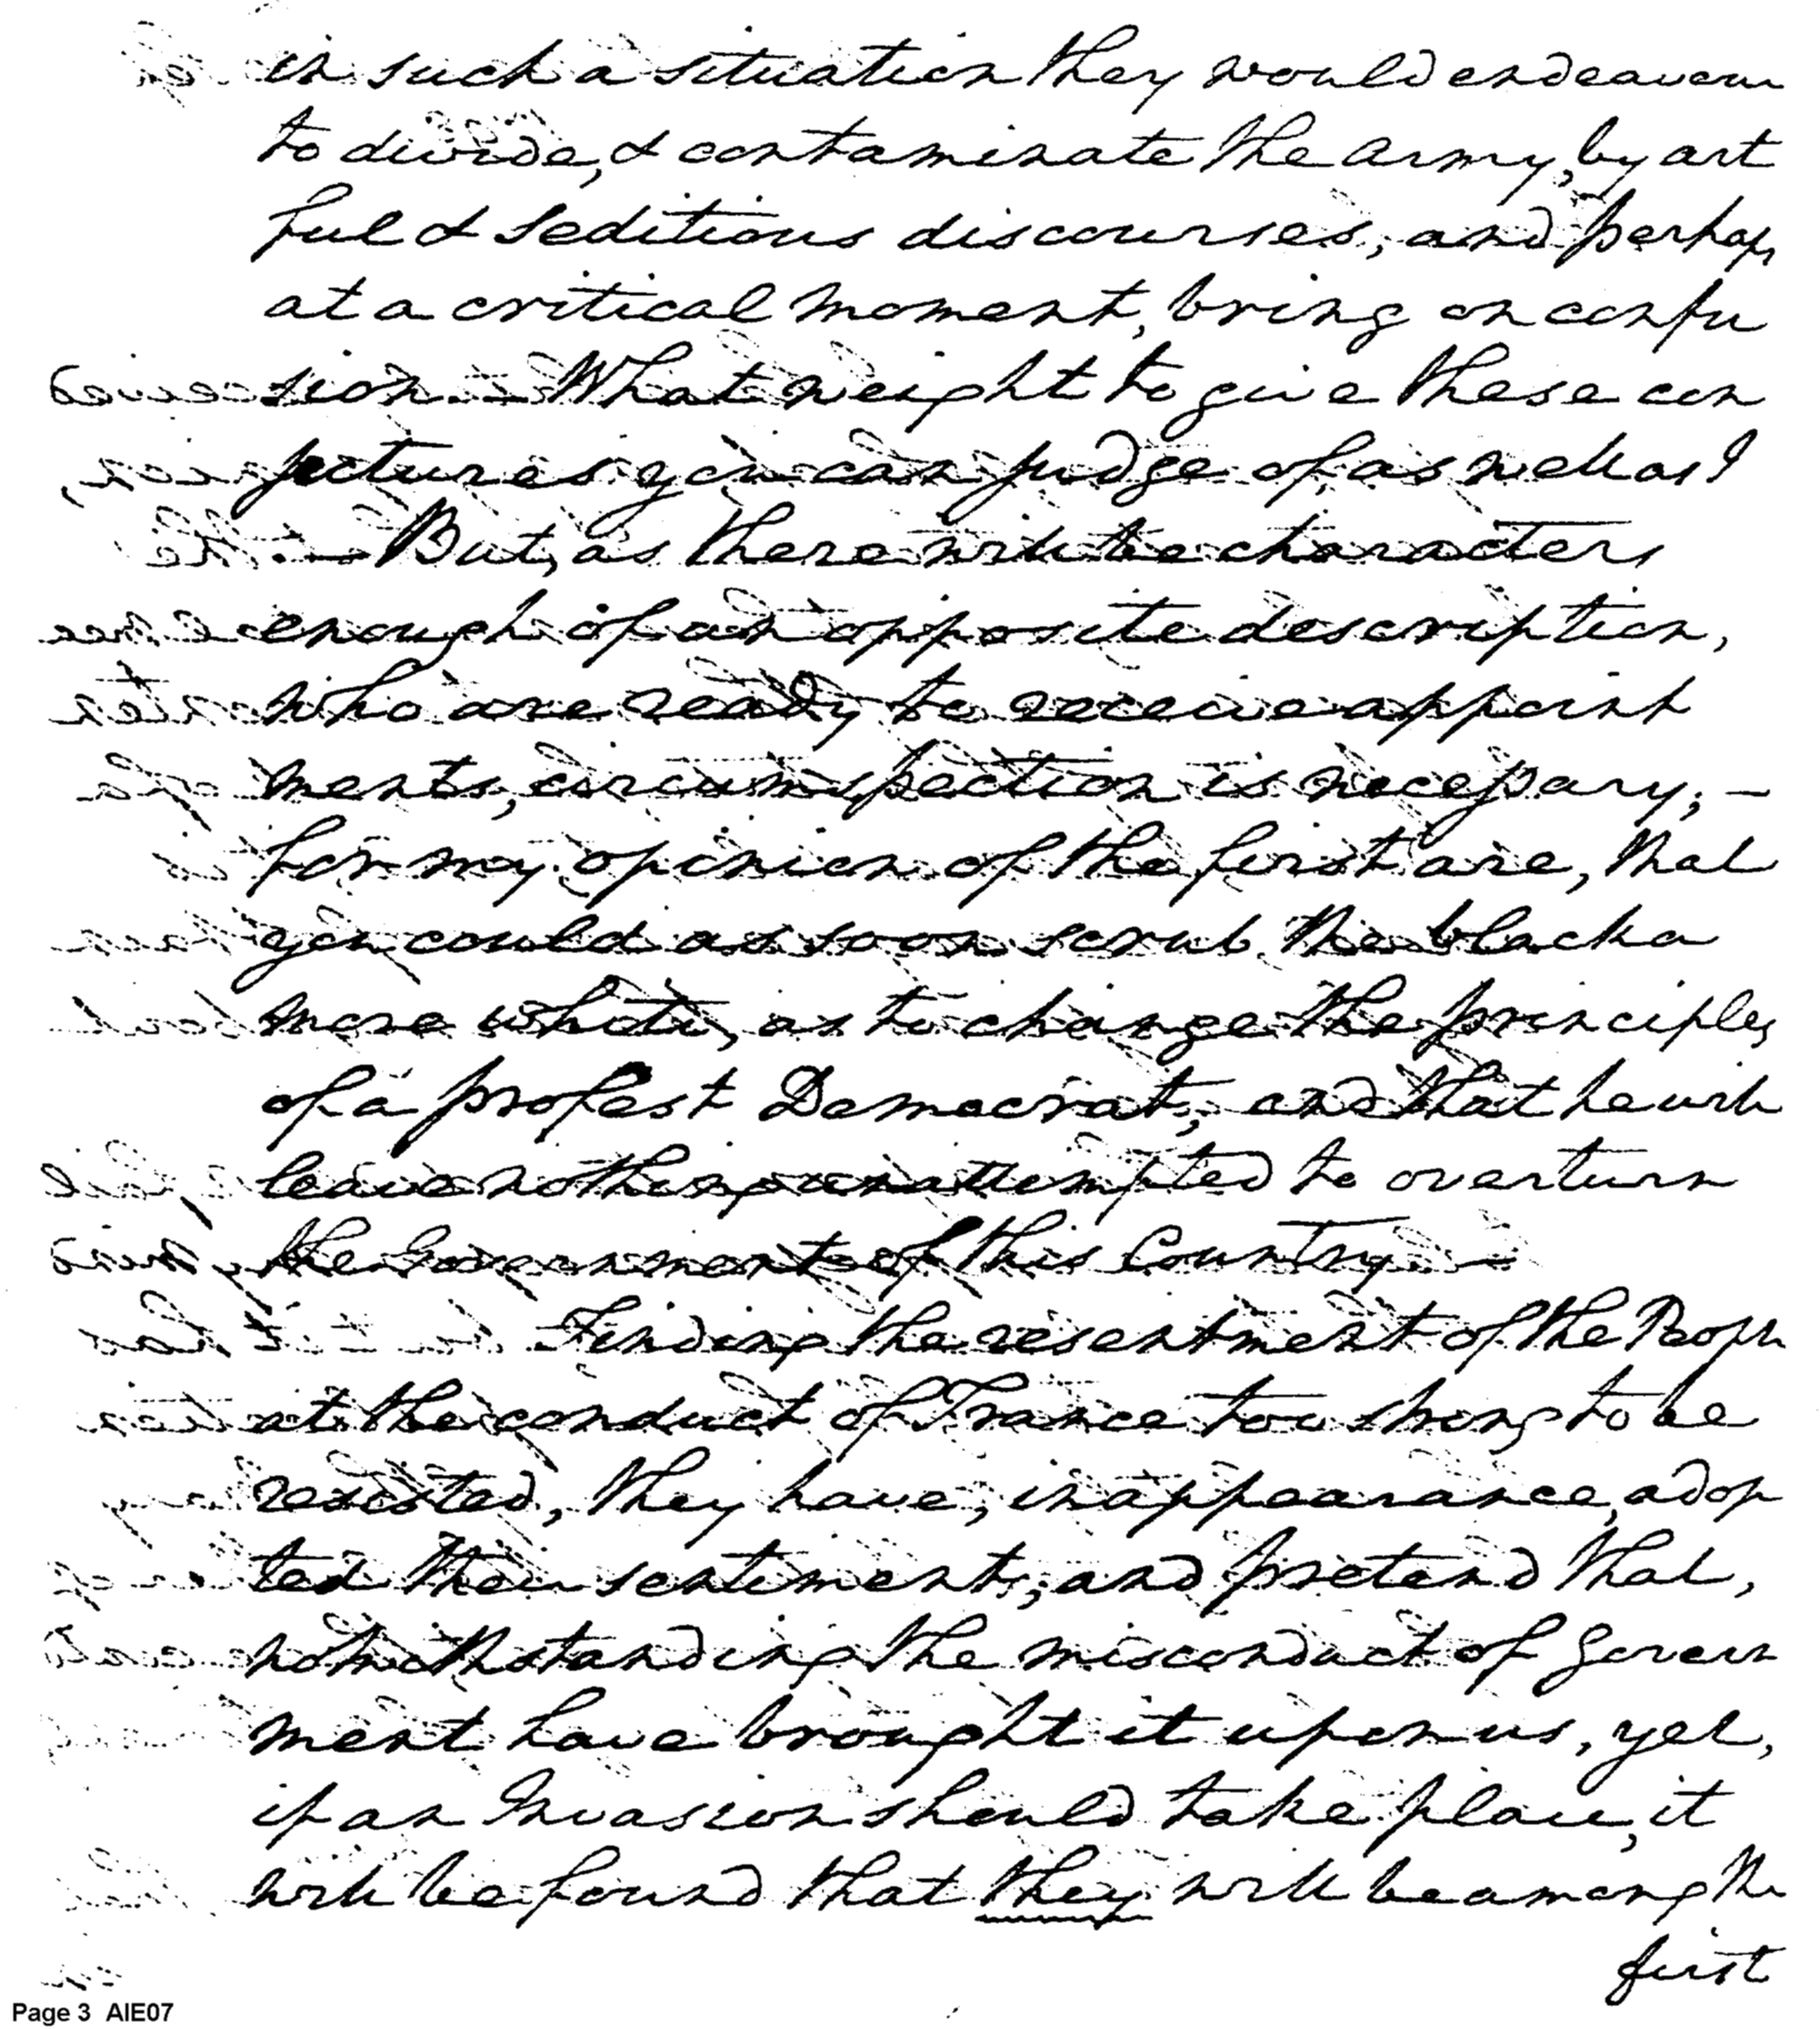 in such a situation they would endeavour
to divide, & contaminate the Army, by art
ful & Seditious discourses, and perhaps
at a critical moment, bring on confu
sion. — What weight to give these con
jectures you can judge of, as well as I
— But, as there will be characters
enough of an opposite description,
who are ready to receive appoint
ments, circumspection is necessary; —
for my opinion of the first are, that
you could as soon scrub the blacka
more white, as to change the principles
of a profest Democrat; and that he will
leave nothing unattempted to overturn
the Government of this Country. —
Finding the resentment of the People
at the conduct of France too strong to be
resisted, they have, in appearance, adop
ted their sentiments; and pretend that,
notwithstanding the misconduct of Govern
ment have brought it upon us, yet,
if an Invasion should take place, it
will be found that they will be among the
first
Page 3 AIE07